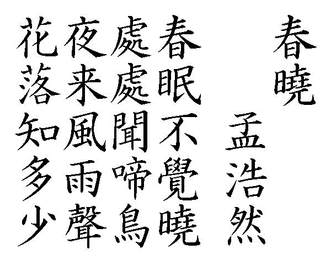 春曉
孟浩然
春眠不覺曉
處處聞啼鳥
夜来風雨聲
花落知多少